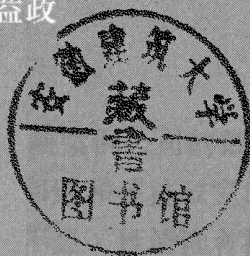 政
安徽建筑大学
藏
書
图书馆